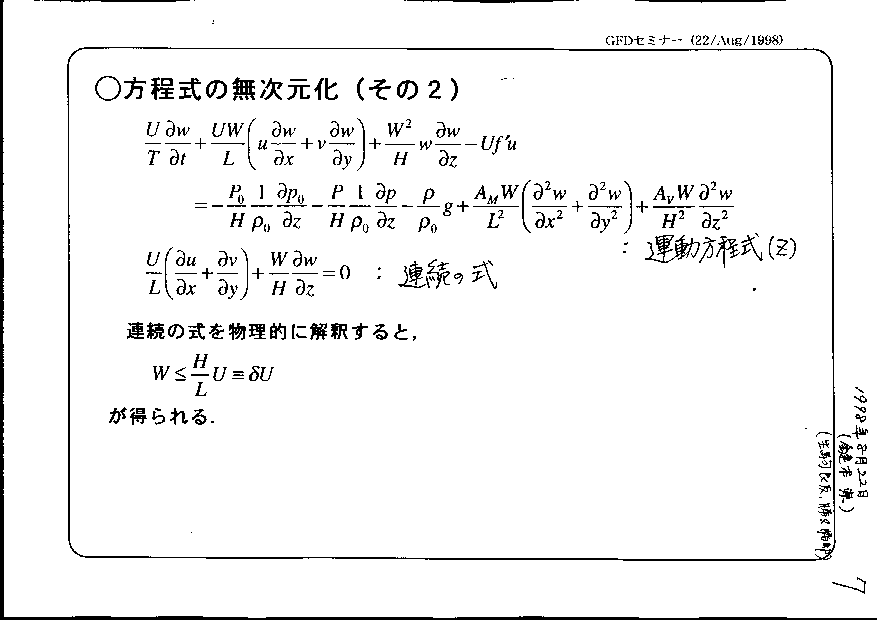 GFDセミナー (22/Aug/1998)
○方程式の無次元化（その２）
U/T ∂w/∂t + UW/L (u ∂w/∂x + v ∂w/∂y) + W²/H w ∂w/∂z − Uf′u
= − P₀/H 1/ρ₀ ∂p₀/∂z − P/H 1/ρ₀ ∂p/∂z − ρ/ρ₀ g + A_M W/L² (∂²w/∂x² + ∂²w/∂y²) + A_V W/H² ∂²w/∂z²
: 運動方程式(Z)
U/L (∂u/∂x + ∂v/∂y) + W/H ∂w/∂z = 0 : 連続の式
連続の式を物理的に解釈すると，
W ≤ H/L U ≡ δU
が得られる．
1998年8月22日
7